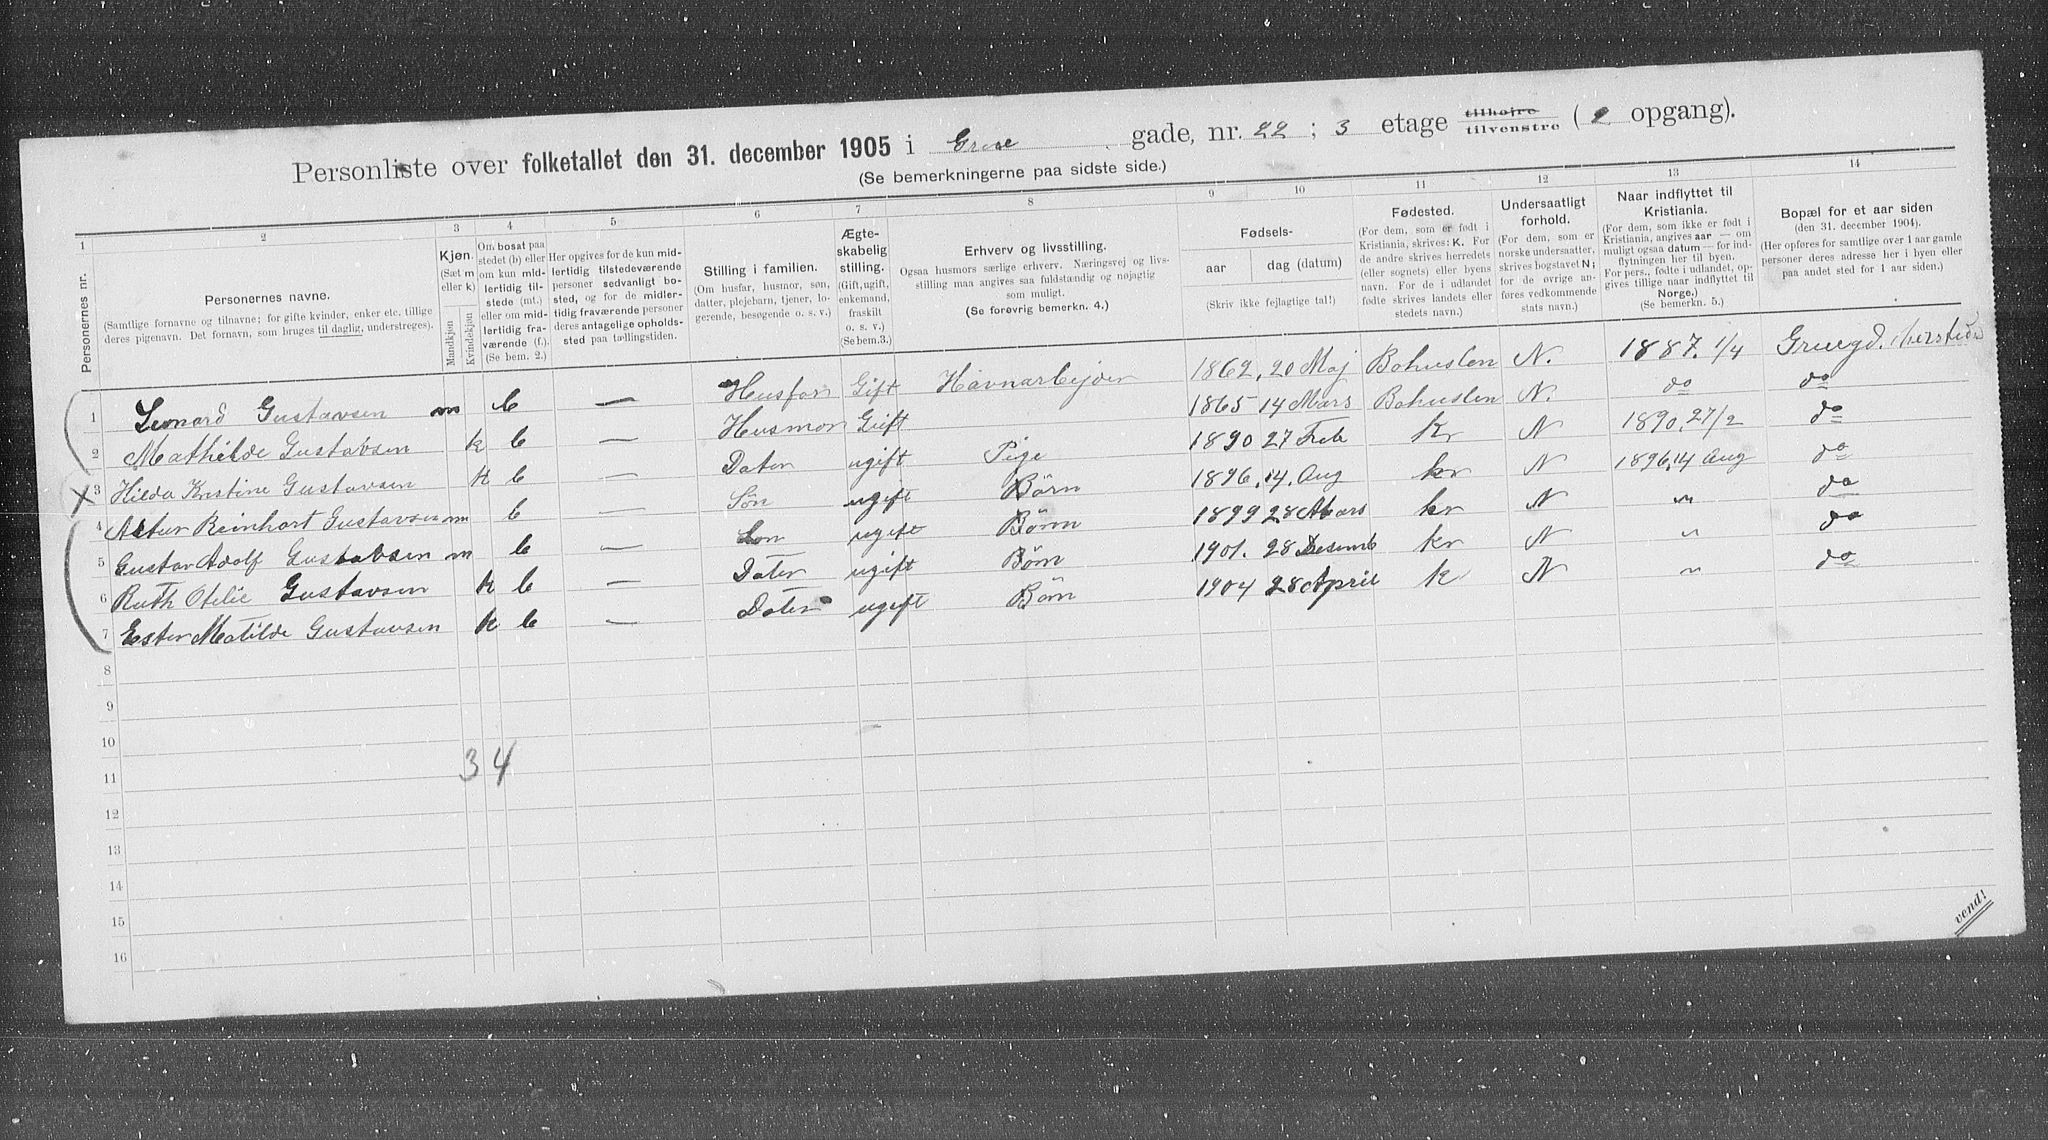 Personliste over folketallet den 31. december 1905 i gade, nr. 22 ; 3 etage tilhøjre tilvenstre ( 2 opgang).
(Se bemerkningerne paa sidste side.)
1 2 3 4 5 6 7 8 9 10 11 12 13 14
Personernes nr.
Personernes navne.
(Samtlige fornavne og tilnavne; for gifte kvinder, enker etc. tillige
deres pigenavn. Det fornavn, som bruges til daglig, understreges).
Kjøn.
(Sæt m
eller k)
Mandkjøn
Kvindekjøn
Om bosat paa
stedet (b) eller
om kun mid-
lertidig til-
stede (mt.)
eller om mid-
lertidig fra-
værende (f.).
(Se bem. 2.)
Her opgives for de kun mid-
lertidig tilstedeværende
personer sedvanligt bo-
sted, og for de midler-
tidig fraværende personer
deres antagelige opholds-
sted paa tællingstiden.
Stilling i familien.
(Om husfar, husmor, søn,
datter, plejebarn, tjener, lo-
gerende, besøgende o. s. v.)
Ægte-
skabelig
stilling.
(Gift, ugift,
enkemand,
fraskilt
o. s. v.)
(Se bem. 3.)
Erhverv og livsstilling.
Ogsaa husmors særlige erhverv. Næringsvej og livs-
stilling maa angives saa fuldstændig og nøjagtig
som muligt.
(Se forøvrig bemerkn. 4.)
Fødsels-
aar dag (datum)
(Skriv ikke fejlagtige tal!)
Fødested.
(For dem, som er født i
Kristiania, skrives: K. For
de andre skrives herredets
(eller sognets) eller byens
navn. For de i udlandet
fødte skrives landets eller
stedets navn.)
Undersaatligt
forhold.
(For dem, som er
norske undersaatter,
skrives bogstavet N;
for de øvrige an-
føres vedkommende
stats navn.)
Naar indflyttet til
Kristiania.
(For dem, som ikke er født i
Kristiania, angives aar — om
muligt ogsaa datum — for ind-
flytningen her til byen.
For pers., fødte i udlandet, op-
gives tillige naar indflyttet til
Norge.)
(Se bemerkn. 5.)
Bopæl for et aar siden
(den 31. december 1904).
(Her opføres for samtlige over 1 aar gamle
personer deres adresse her i byen eller
paa andet sted for 1 aar siden.)
1 Leonard Gustavsen m b — Husfar Gift Havnarbejder 1862 20 Maj Bohuslen N. 1887. 1/4
2 Mathilde Gustavsen k b — Husmor Gift 1865 14 Mars Bohuslen N. do do
3 Hilda Kristine Gustavsen k b — Dater ugift Pige 1890 27 Feb Kr N 1890. 27/2 do
4 Reinhart Gustavsen m b — Søn ugift Børn 1896. 14. Aug kr N 1896. 14 Aug do
5 Gustav Adolf Gustavsen m b — Søn ugift Børn 1899 28 Mars kr N " do
6 Ruth Otelie Gustavsen k b — Dater ugift Børn 1901. 28 Desemb kr N " do
7 Ester Matilde Gustavsen k b — Dater ugift Børn 1904 28 April k N " do
8
9
10
11
3 4
12
13
14
15
16
vend!